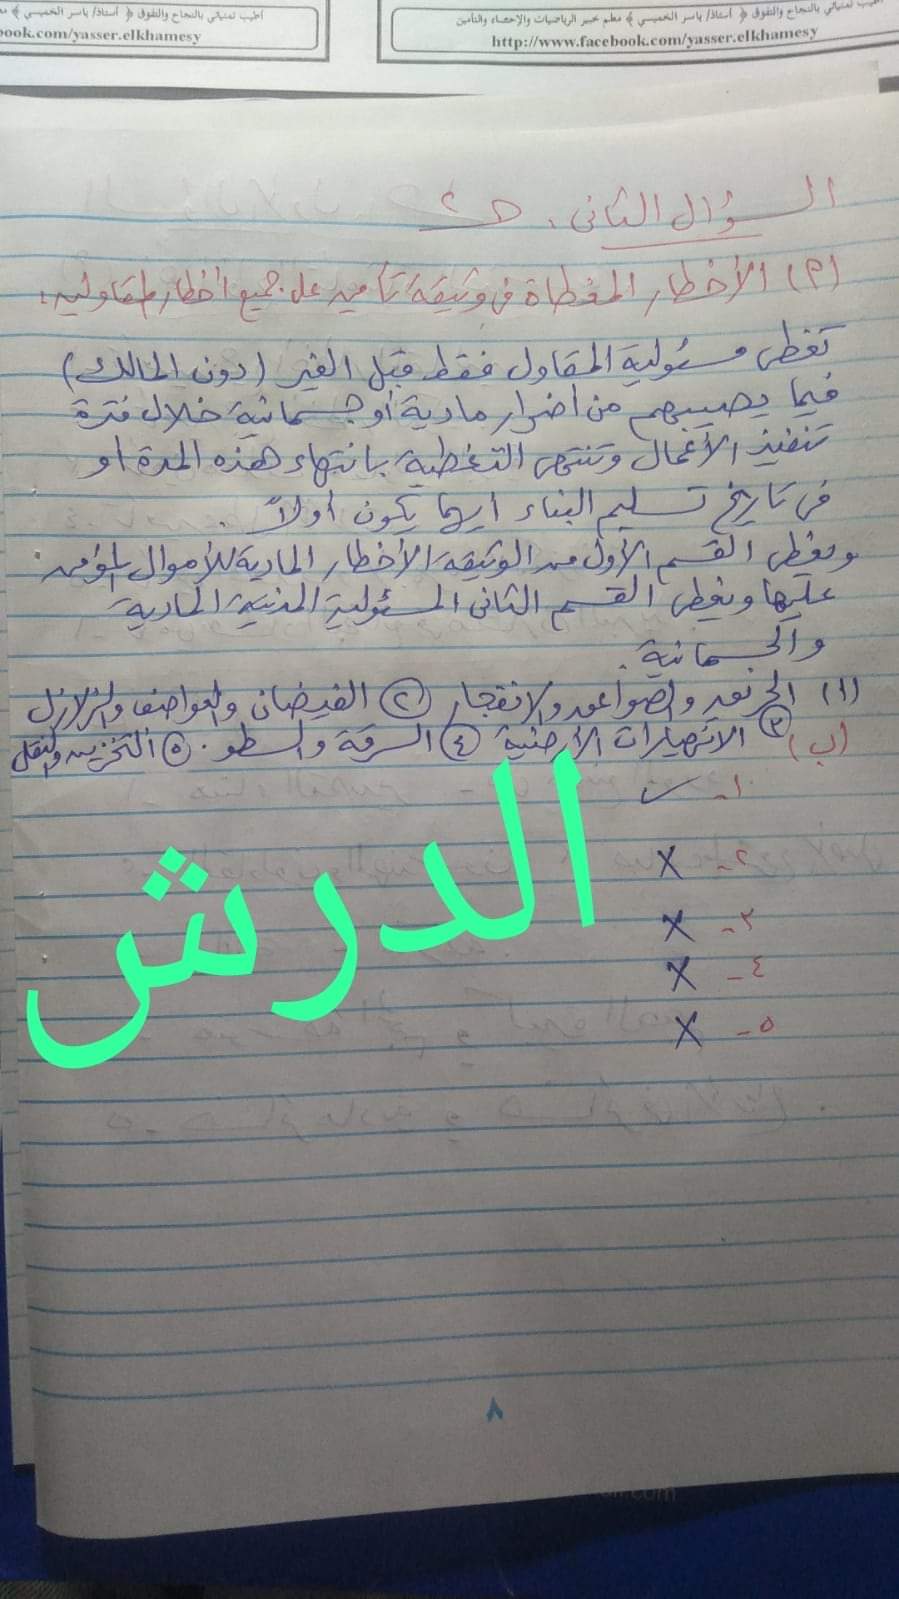 أطيب تمنياتي بالنجاح والتفوق ﴿ أستاذ/ ياسر الخميسي ﴾
book.com/yasser.elkhamesy
أطيب تمنياتي بالنجاح والتفوق ﴿ أستاذ/ ياسر الخميسي ﴾ معلم خبير الرياضيات والإحصاء والتأمين
http://www.facebook.com/yasser.elkhamesy
السؤال الثانى :
(٢) الأخطار المغطاة فى وثيقة تأمين على جميع أخطار المقاولين :
تغطى مسئولية المقاول فقط قبل الغير (دون المالك)
فيما يصيبهم من أضرار مادية أو جسمانية خلال فترة
تنفيذ الأعمال وتنتهى التغطية بانتهاء هذه المدة او
فى تاريخ تسليم البناء ايهما يكون أولاً .
ويغطى القسم الأول من الوثيقة الأخطار المادية للأموال المؤمن
عليها ويغطى القسم الثانى المسئولية المدنية المادية
والجسمانية .
(١) الحريق والصواعق والانفجار (٢) الفيضان والعواصف والزلازل
(٣) الانهيارات الأرضية (٤) السرقة والسطو . (٥) التخزين والنقل
(ب)
١- ✓
٢- X
٣- X
٤- X
٥- X
الدرش
٨